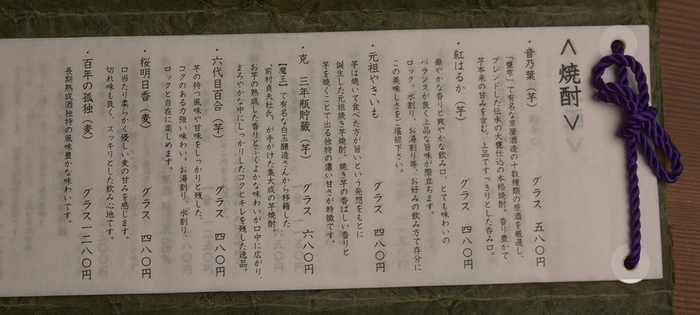 ＜焼酎＞
・音乃葉（芋）　グラス　五八〇円
「甕雫」で有名な京屋酒造の十数種類の原酒を厳選し、
ブレンドした伝承の大甕仕込の本格焼酎。香り豊かで
芋本来の甘みを含む、上品ですっきりとした呑み口。
・紅はるか（芋）　グラス　四八〇円
華やかな香りと爽やかな飲み口、とても味わいの
バランスが良く上品な旨味が際立ちます。
ロック、水割り、お湯割り等、お好みの飲み方で存分に
この美味しさをご堪能下さい。
・元祖やきいも　グラス　四八〇円
芋は焼いて食べた方が旨いという発想をもとに
誕生した元祖焼き芋焼酎。焼き芋の香ばしい香りと
芋を焼くことで出る独特の濃い甘さが特徴です。
・克　三年瓶貯蔵（芋）　グラス　六八〇円
【魔王】で有名な白玉醸造さんから移籍した
前村貞夫氏。が手がけた集大成の芋焼酎。
お芋の熟成した香りとふくよかな味わいが口中に広がり、
まろやかな中にしっかりしたコクとキレを残した逸品。
・六代目百合（芋）　グラス　四八〇円
芋の持つ風味や甘味をしっかりと残した、
コクのある力強い味わい。お湯割り、水割り、
ロックと自在に楽しめます。
・桜明日香（麦）　グラス　四八〇円
口当たり柔らかく優しい麦の甘みを感じます。
切れ味も良く、スッキリとした飲み心地です。
・百年の孤独（麦）　グラス一二八〇円
長期熟成酒独特の風味豊かな味わいです。